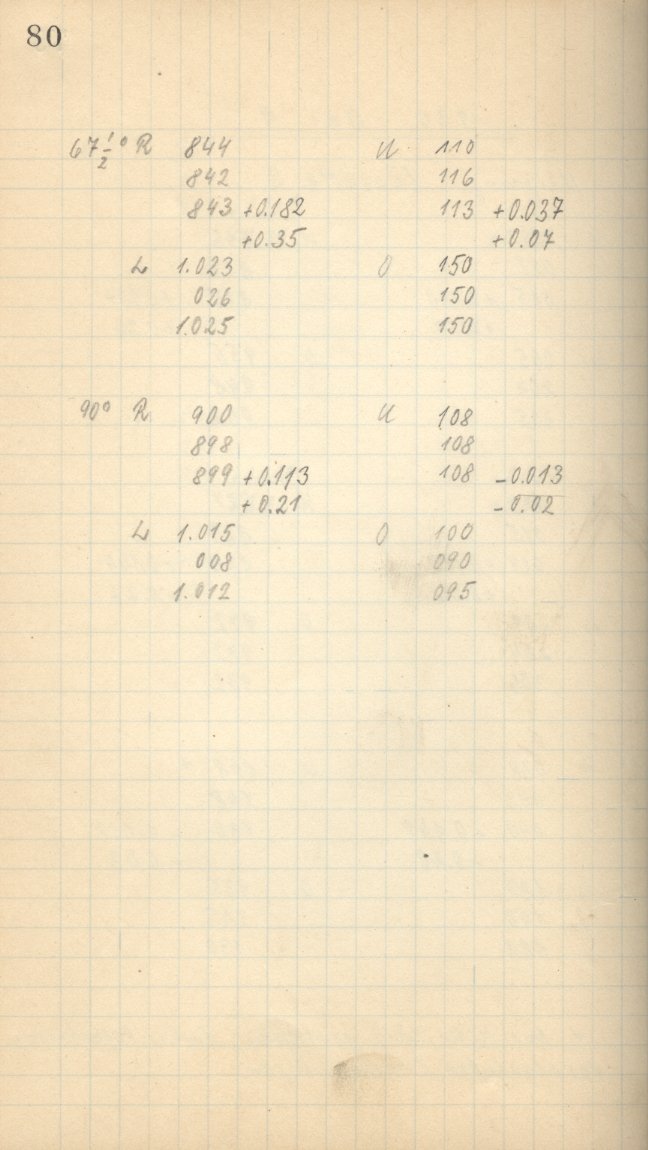 80
67½° R 844 U 110
842 116
843 +0.182 113 +0.037
+0.35 +0.07
L 1.023 O 150
026 150
1.025 150
90° R 900 U 108
898 108
899 +0.113 108 -0.013
+0.21 -0.02
L 1.015 O 100
008 090
1.012 095